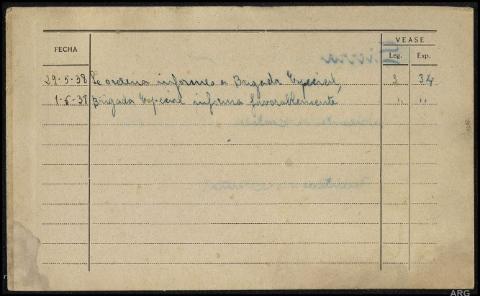 VEASE
FECHA Leg. Exp.
29-5-38 Se ordena informes a Brigada Especial, 2 34
1-6-38 Brigada Especial informa favorablemente " "
ARG